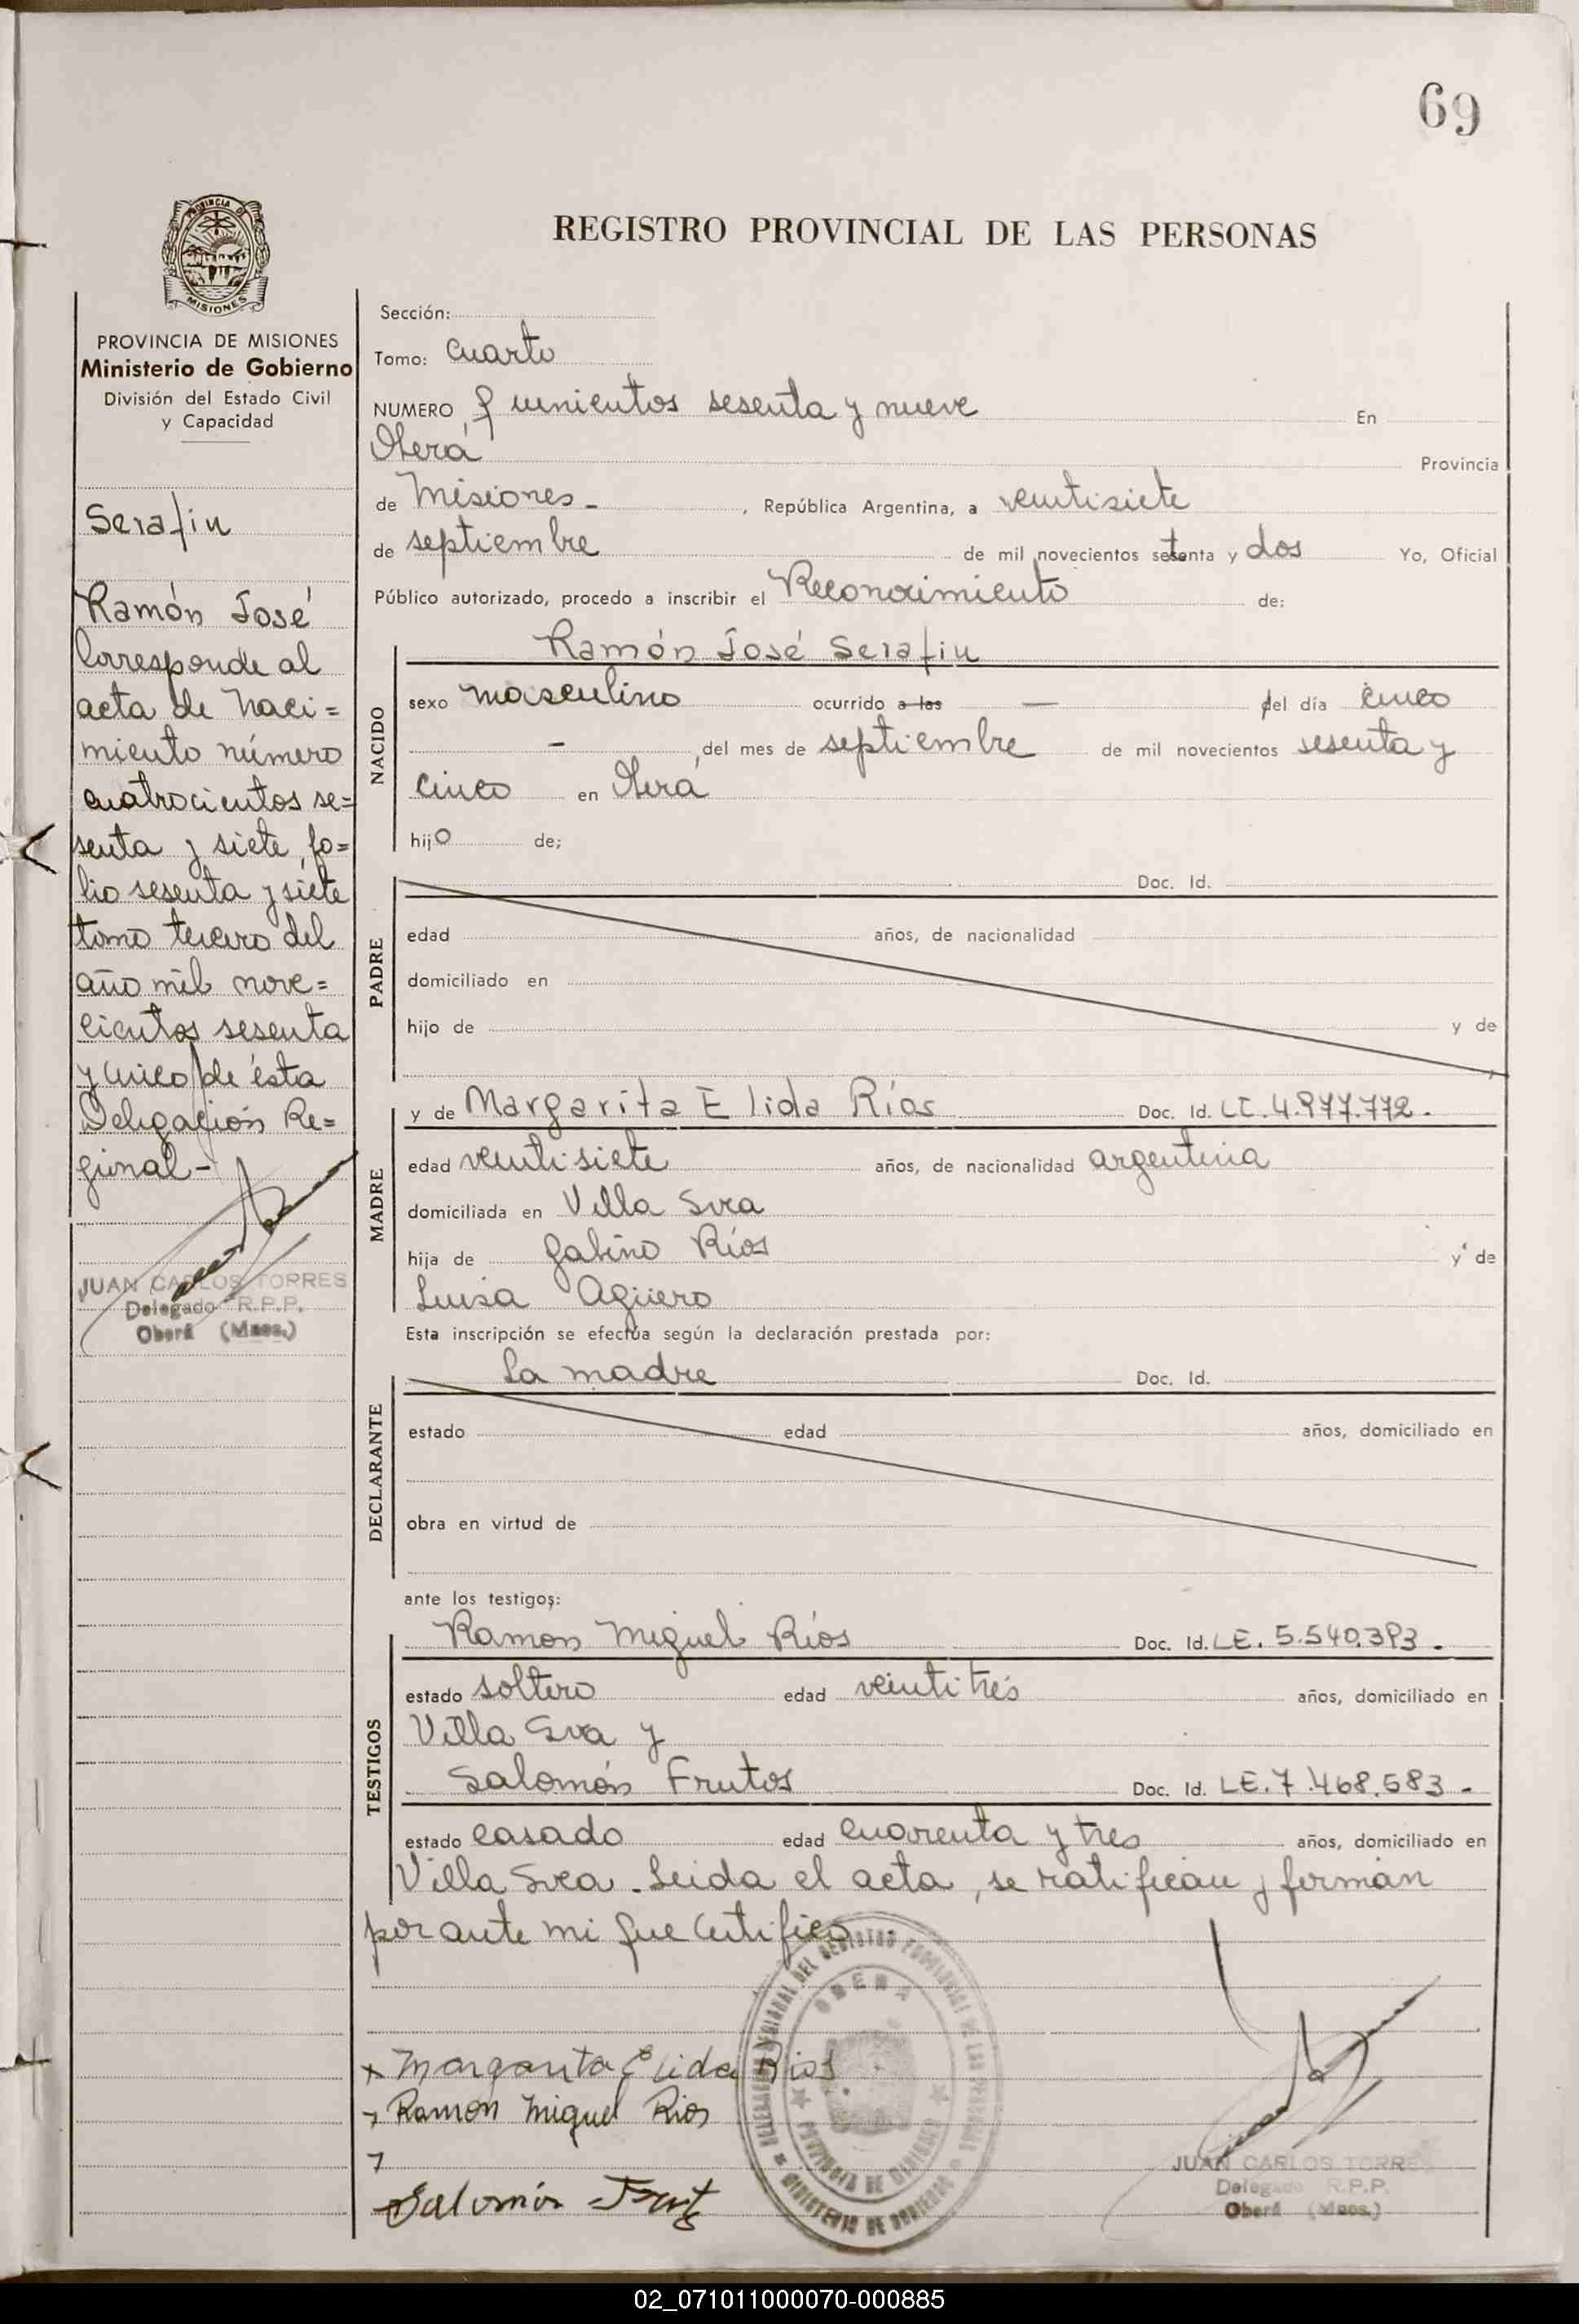 69
PROVINCIA DE
MISIONES
REGISTRO PROVINCIAL DE LAS PERSONAS
PROVINCIA DE MISIONES
Ministerio de Gobierno
División del Estado Civil
y Capacidad
Serafin
Ramón José
Corresponde al
acta de naci=
miento número
cuatrocientos se=
senta y siete, fo=
lio sesenta y siete
tomo tercero del
año mil nove=
cientos sesenta
y cinco de ésta
Delegación Re=
gional-
JUAN CARLOS TORRES
Delegado R.P.P.
Oberá (Mnes.)
Sección:
Tomo: Cuarto
NUMERO quinientos sesenta y nueve En
Oberá Provincia
de Misiones- , República Argentina, a veintisiete
de septiembre de mil novecientos setenta y dos Yo, Oficial
Público autorizado, procedo a inscribir el Reconocimiento de:
NACIDO
Ramón José Serafin
sexo masculino ocurrido a las — del día cinco
- del mes de septiembre de mil novecientos sesenta y
cinco en Oberá
hijo de;
PADRE
Doc. Id.
edad años, de nacionalidad
domiciliado en
hijo de y de
MADRE
y de Margarita Elida Ríos Doc. Id. LC. 4.977.772.
edad veintisiete años, de nacionalidad argentina
domiciliada en Villa Svea
hija de Gabino Ríos y de
Luisa Agüero
Esta inscripción se efectúa según la declaración prestada por:
DECLARANTE
La madre Doc. Id.
estado edad años, domiciliado en
obra en virtud de
ante los testigos:
TESTIGOS
Ramon Miguel Ríos Doc. Id. LE. 5.540.393.
estado soltero edad veintitrés años, domiciliado en
Villa Svea y
Salomón Frutos Doc. Id. LE. 7.468.583.-
estado casado edad cuarenta y tres años, domiciliado en
Villa Svea. Leida el acta, se ratifican y firman
por ante mi que certifico
x Margarita Elida Rios
Ramon Miguel Rios
Salomón Frut
DELEGACION REGIONAL DEL REGISTRO PROVINCIAL DE LAS PERSONAS
OBERA
PROVINCIA DE MISIONES
MINISTERIO DE GOBIERNO
JUAN CARLOS TORRES
Delegado R.P.P.
Oberá (Mnes.)
02_071011000070-000885